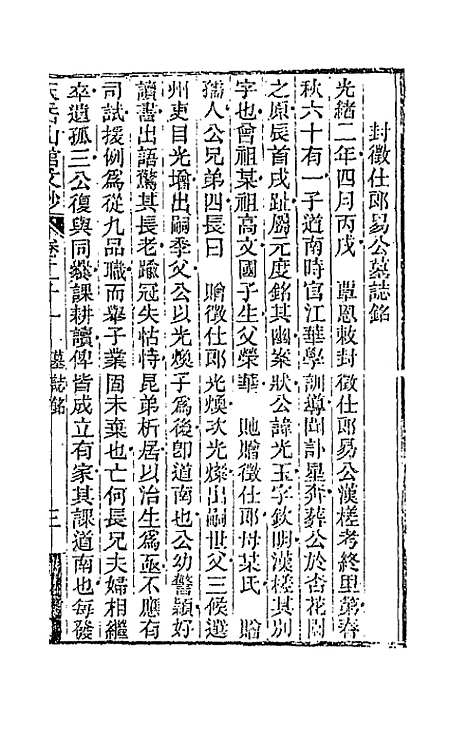 封徵仕郎易公墓誌銘
光緒二年四月丙戌 覃恩敕封徵仕郎易公漢槎考終里第春
秋六十有一子道南時官江華學訓導聞訃星奔葬公於杏花園
之原辰首戌趾屬元度銘其幽案狀公諱光玉字欽明漢槎其別
字也曾祖某祖高文國子生父榮華 貤贈徵仕郎母某氏 贈
孺人公兄弟四長曰 贈徵仕郎光煥次光燦出嗣世父三候選
州吏目光壻出嗣季父公以光煥子為後卽道南也公幼警穎好
讀書出語驚其長老踰冠失怙恃昆弟析居以治生為亟不應有
司試援例為從九品職而舉子業固未棄也亡何長兄夫婦相繼
卒遺孤三公復與同爨課耕讀俾皆成立有家其課道南也每發
天岳山館文鈔 卷二十一 墓誌銘 三